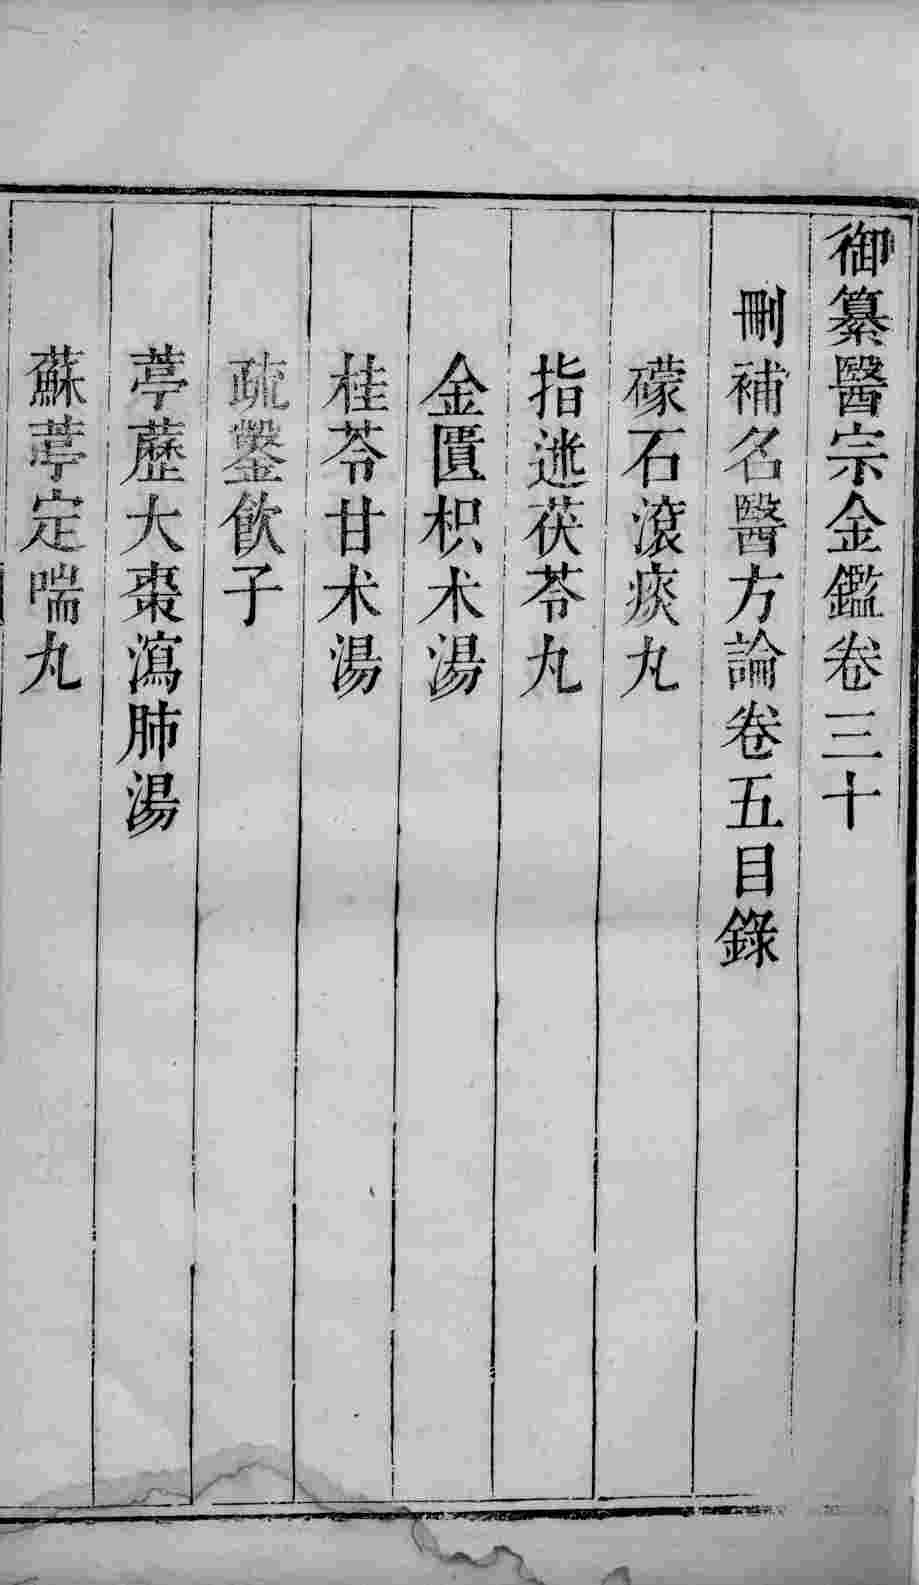 御纂醫宗金鑑卷三十
刪補名醫方論卷五目錄
礞石滾痰丸
指迷茯苓丸
金匱枳术湯
桂苓甘术湯
疏鑿飲子
葶藶大棗瀉肺湯
蘇葶定喘丸